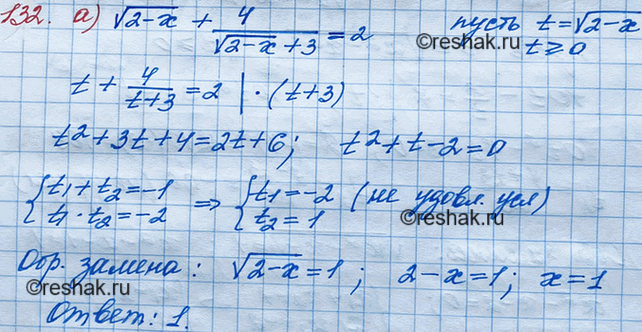 132. а) √(2-x) + 4/(√(2-x) + 3) = 2 пусть t = √(2-x)
t ≥ 0
©reshak.ru
t + 4/(t+3) = 2 | · (t+3)
t² + 3t + 4 = 2t + 6; t² + t - 2 = 0
{t₁ + t₂ = -1 ⇒ {t₁ = -2 (не удовл. усл)
{t₁ · t₂ = -2 {t₂ = 1
©reshak.ru
Обр. замена: √(2-x) = 1; 2-x = 1; x = 1
©reshak.ru
©reshak.ru
Ответ: 1.